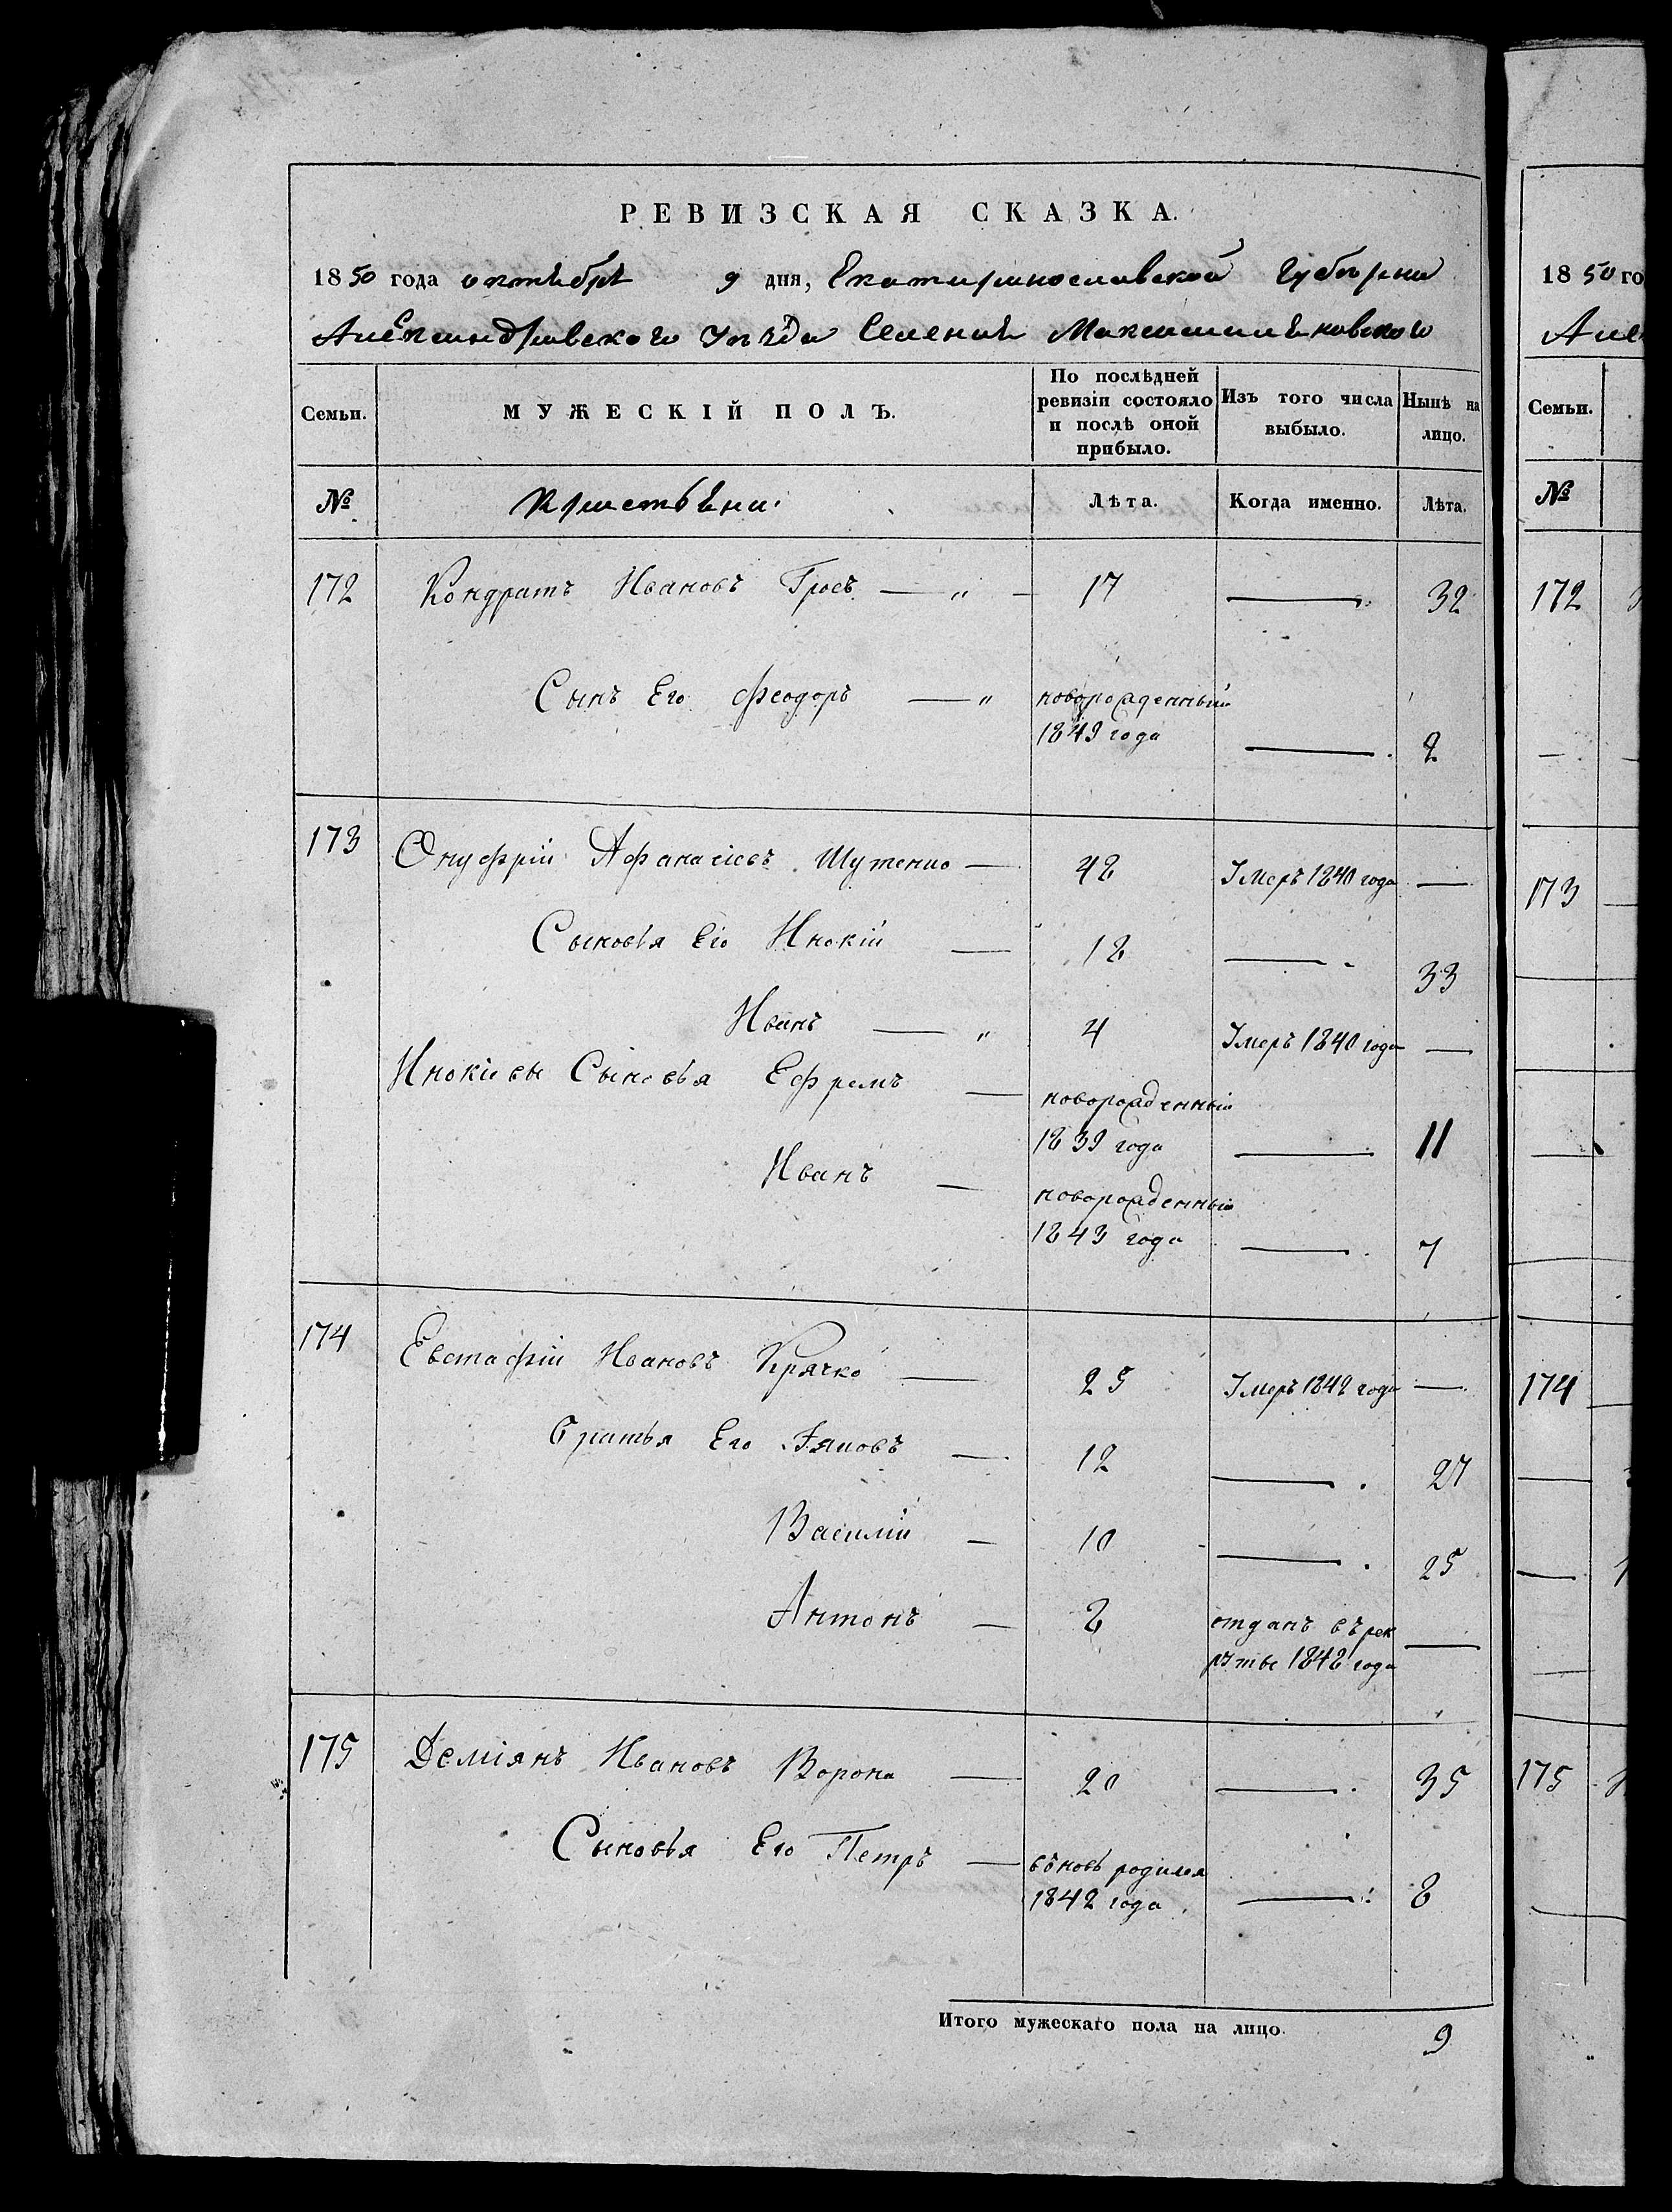 РЕВИЗСКАЯ СКАЗКА.
1850 года октября 9 дня, Екатеринославской Губернии
Александровскаго Уезда Селения Максимильяновского
Семьи. МУЖЕСКІЙ ПОЛЪ. По послѣдней ревизіи состояло и послѣ оной прибыло. Изъ того числа выбыло. Нынѣ на лицо.
№ Крестьяни. Лѣта. Когда именно. Лѣта.
172 Кондратъ Ивановъ Гросъ — „ — 17 — 32
Сынъ Его Феодоръ — „ новорожденный
1849 года — 2
173 Онуфрій Афанасіевъ — 48 Умеръ 1840 года —
Сыновья Его Инокій — 18 — 33
Иванъ — „ 4 Умеръ 1840 года —
Инокіевы Сыновья Ефремъ — новорожденный
1839 года — 11
Иванъ — новорожденный
1843 года — 7
174 Евстафій Ивановъ Крячко — 25 Умеръ 1842 года —
Братья Его Яковъ — 12 — 27
Василій — 10 — 25
Антонъ — 8 отданъ въ рек
руты 1848 года —
175 Деміянъ Ивановъ Ворона — 20 — 35
Сыновья Его Петръ — вновь родился
1842 года — 8
Итого мужескаго пола на лицо. 9
1850 го
Але
Семьи.
№
172
173
174
175